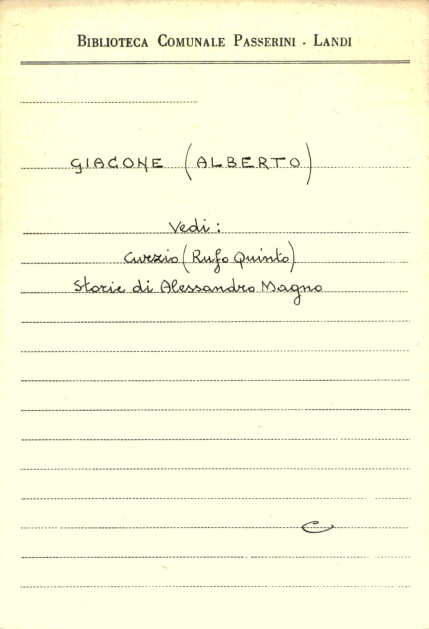 BIBLIOTECA COMUNALE PASSERINI - LANDI
GIACONE (ALBERTO)
Vedi:
Curzio (Rufo Quinto)
Storie di Alessandro Magno
C